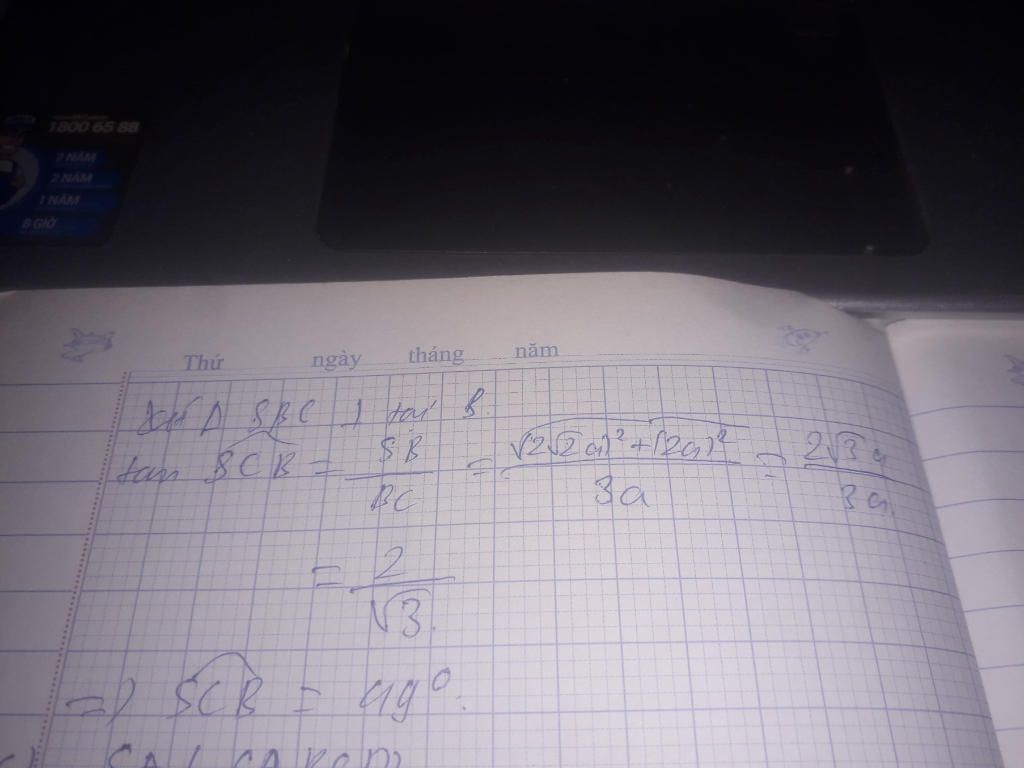 1800 65 88
2 NĂM
2 NĂM
1 NĂM
8 GIỜ
Thứ ngày tháng năm
Xét Δ SBC ⊥ tại B.
tan SCB = SB/BC = √(2√2a)²+(2a)²/3a = 2√3a/3a
= 2/√3.
=> SCB = 49°.